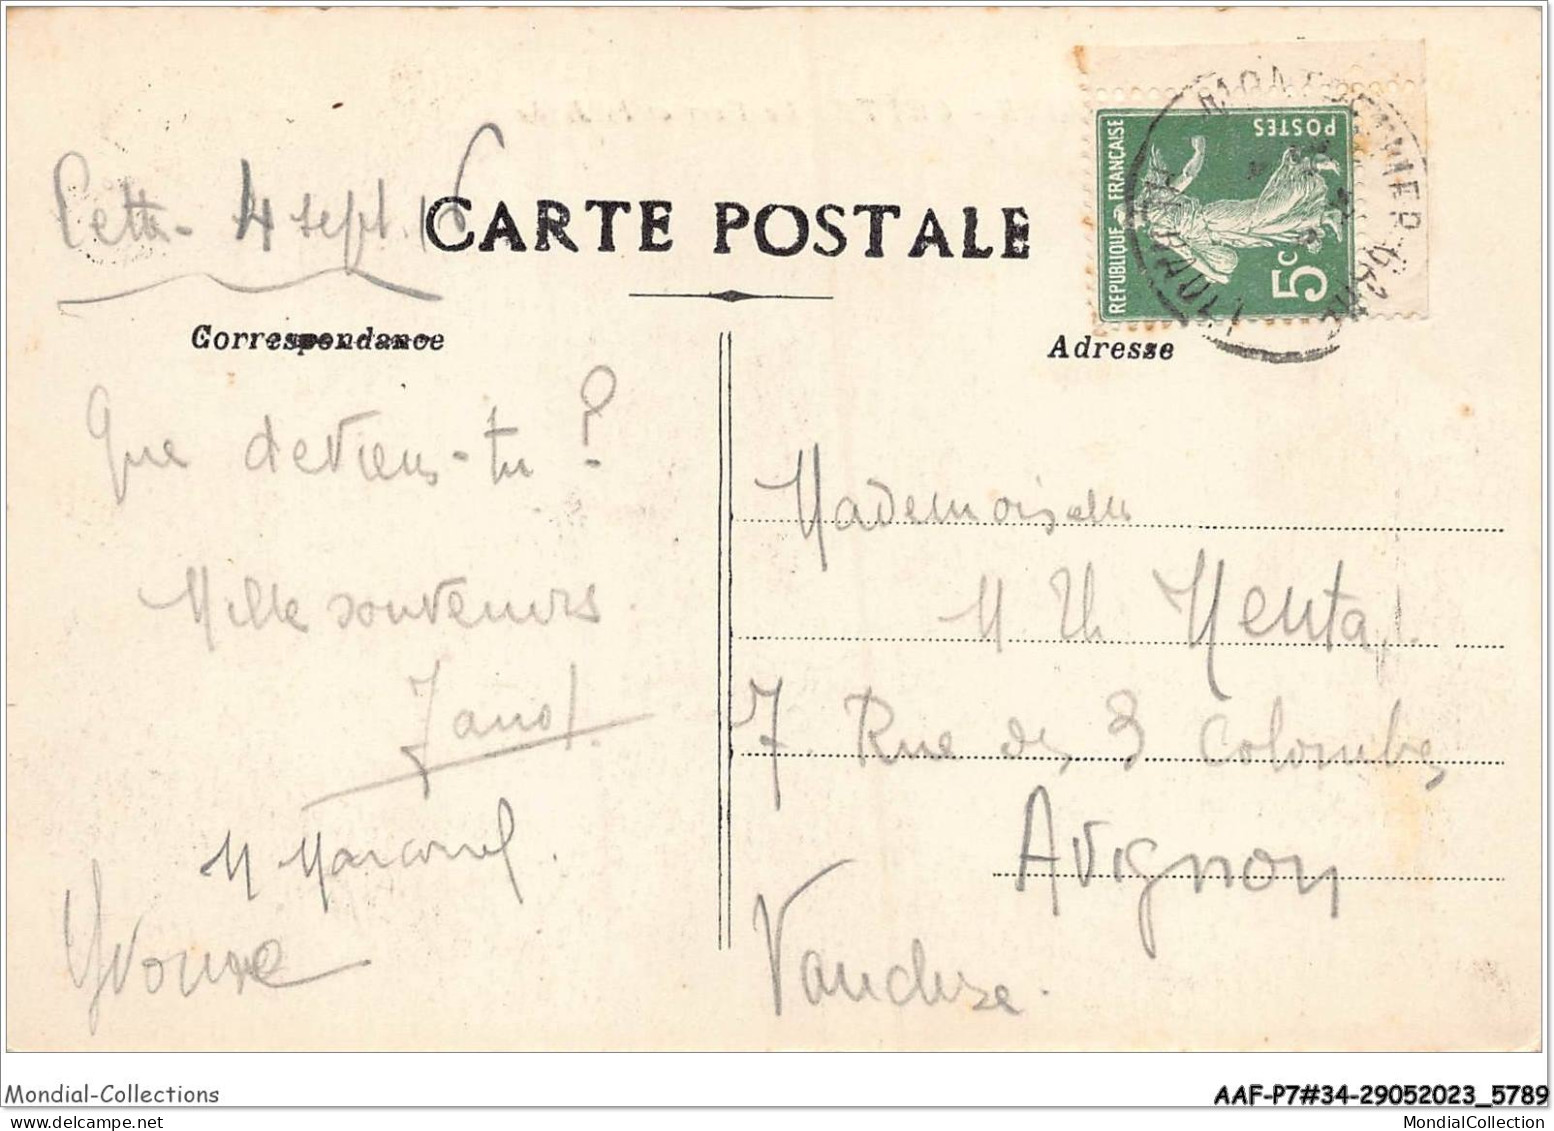 Cette - 4 sept. 16
CARTE POSTALE
REPUBLIQUE FRANCAISE
POSTES
5c
MONTPELLIER GARE
HERAULT
Correspondance
Adresse
Que deviens-tu ?
Mille souvenirs
Janot.
M Marcorel.
Yvonne
Mademoiselle
M Th Menta
7. Rue des 3 Colombes
Avignon
Vaucluse.
Mondial-Collections
AAF-P7#34-29052023_5789
MondialCollection